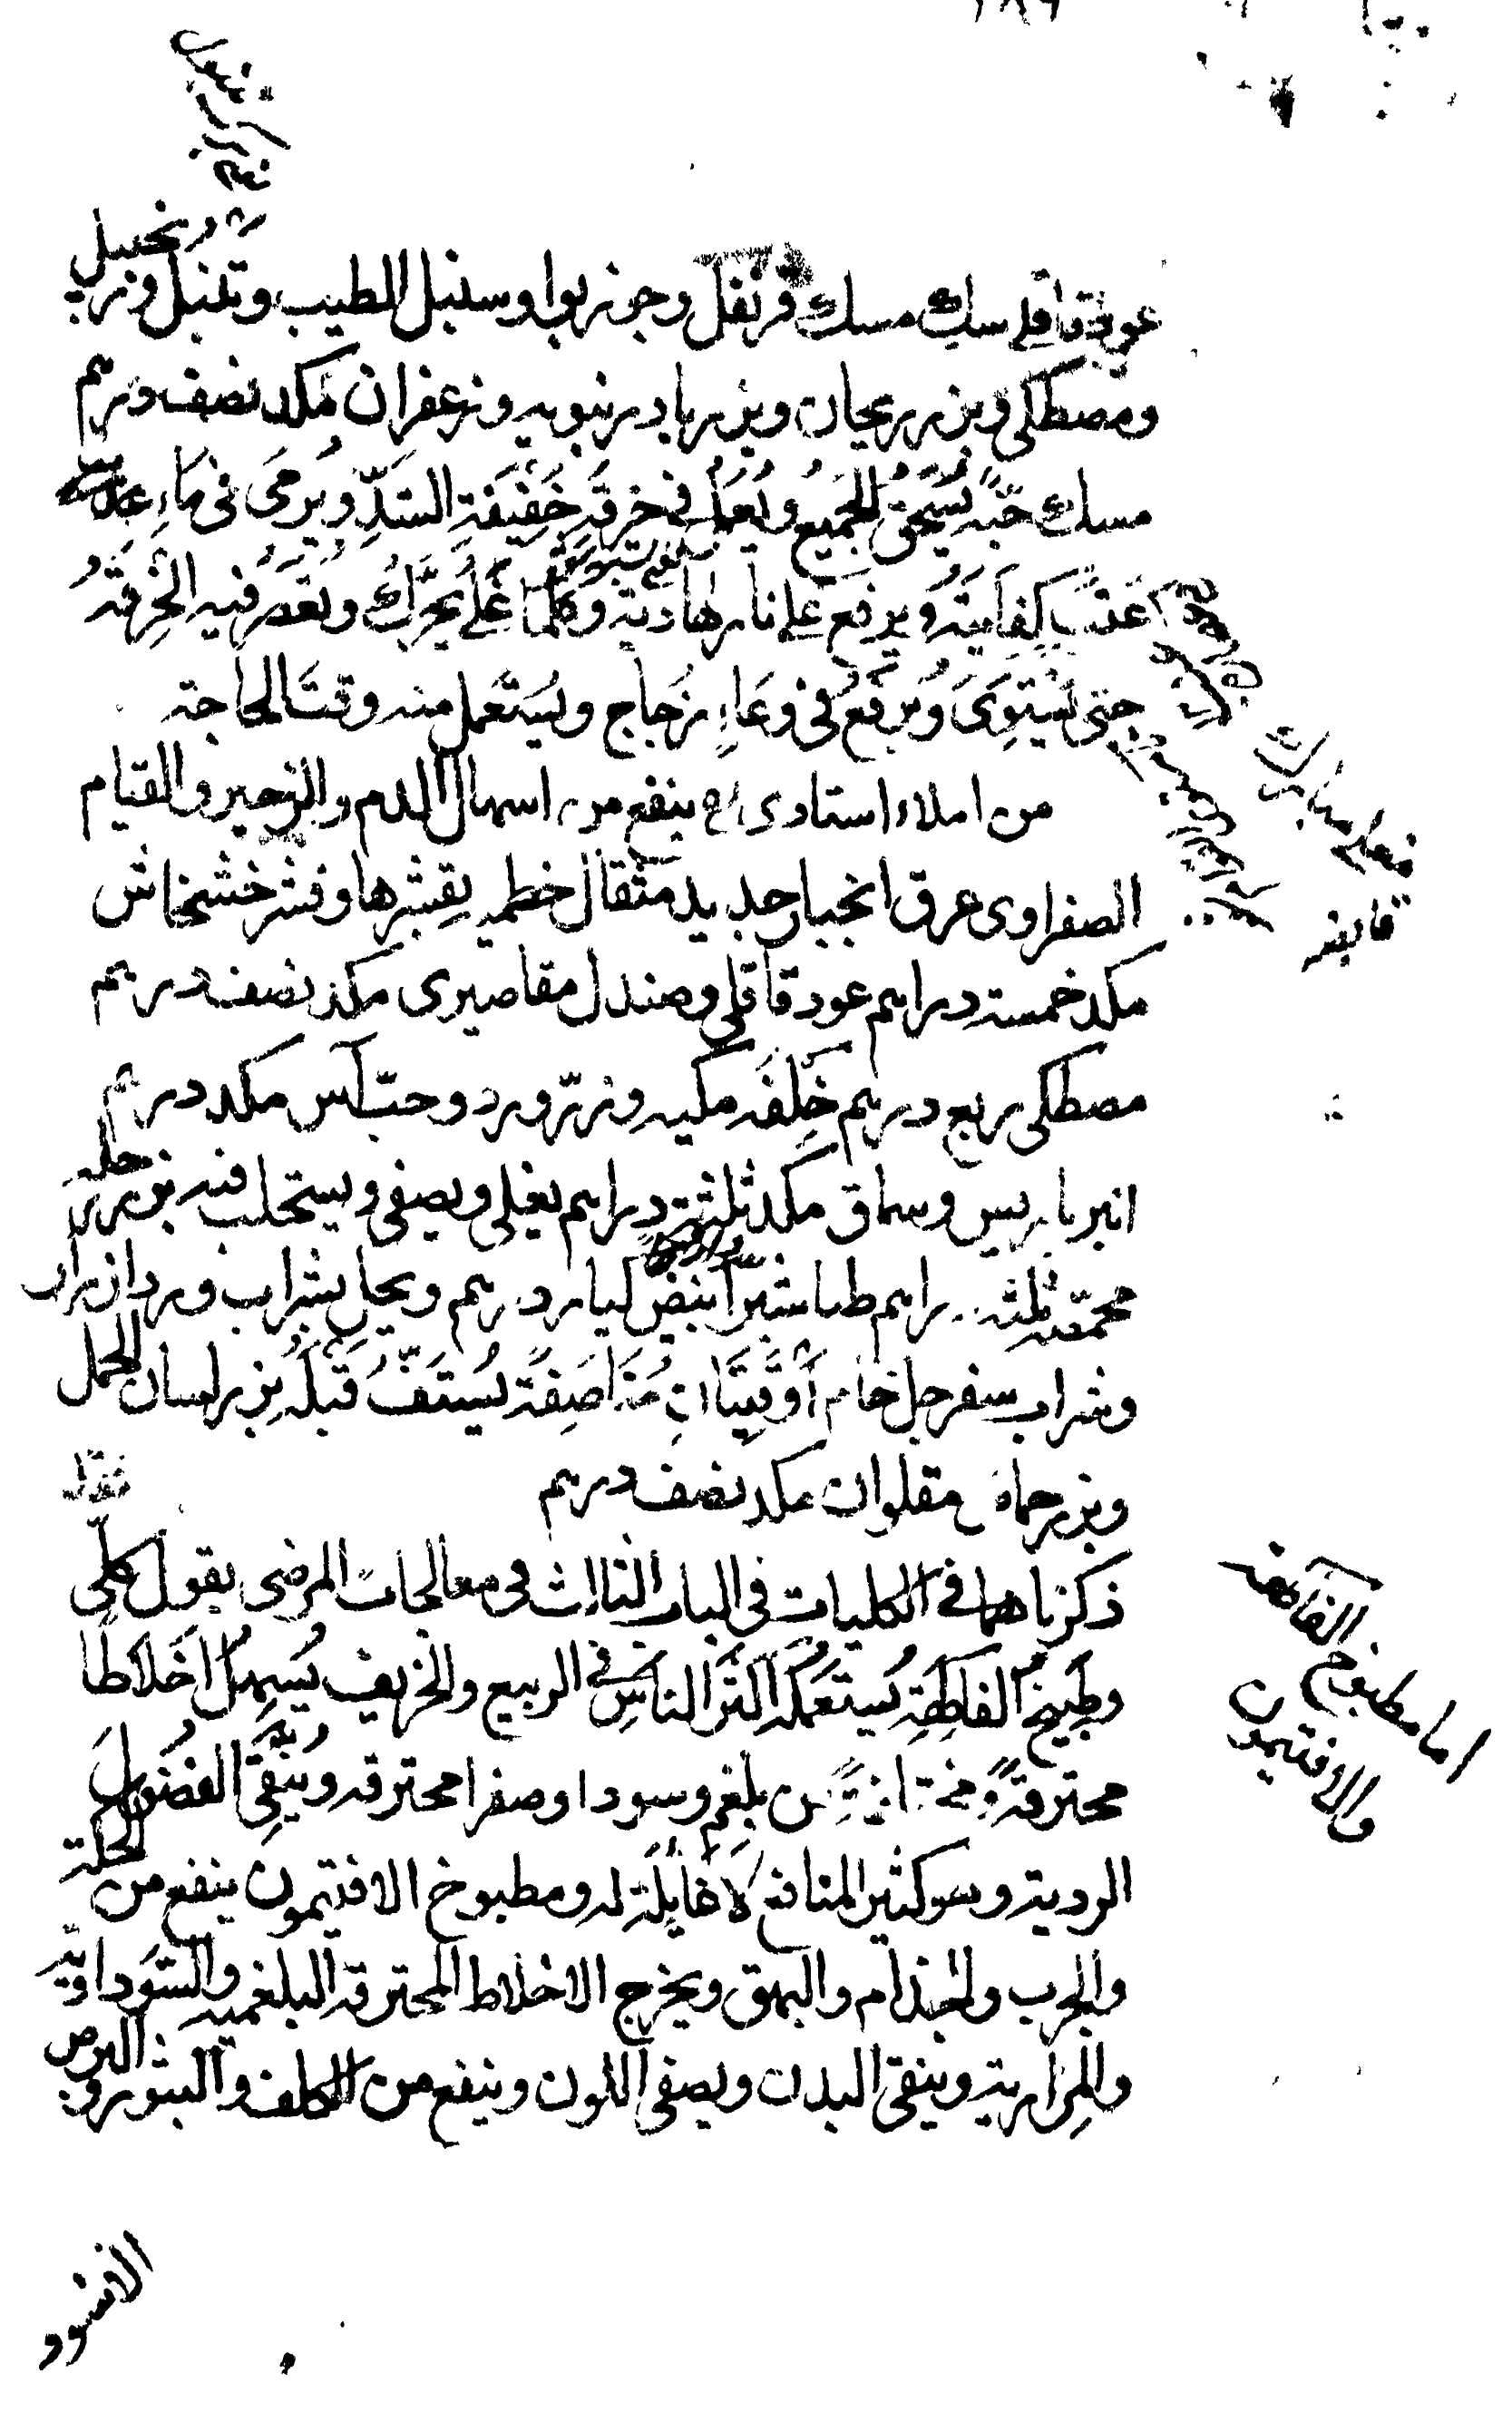 عود قاقلى سك مسك قرنفل وجوز بوا وسنبل الطيب وتنبل وزنجبيل
ومصطكى وبزر ريحان وبزر بادرنبويه وزعفران مكد نصف درهم
مسك حبّه يُسْحَقُ الجَميعُ ويُعمَلُ في خرقَةٍ خَفِيفَةِ الشَدِّ ويُرمَى فى مَاءٍ
عَذْبٍ كِفايَتِهِ ويرفع على نار هادية وكُلَّمَا غَلَى يُحَرَّكُ وتُعْصَرُ فيه الخِرقَةُ
حتى يَسْتَوِىَ ويُرفَعُ فى وِعَاءٍ زُجَاج ويُسْتَعْمل منه وقتَ الحاجة
من املاء استادى ينفع من اسهال الدم والزحير والقيام
الصفراوى عرق انجبار جديد مثقال خطميه بقشرها وقشر خشخاش
مكد خمسة دراهم عود قاقلى وصندل مقاصيرى مكد نصف درهم
مصطكى ربع درهم خلفه مكيه وزرّ ورد وحبّ آس مكد درهم
انبرباريس وسماق مكد ثلثة دراهم يغلى ويصفى ويستحلب فيه بزر رجله
محمصه ثلثة دراهم طباشير ابيض كبار درهم ويحلى بشراب ورد ازرار
وشراب سفرجل خام أُوقِيَّتَانِ مُنَاصَفَةً يُسْتَفُّ قَبْلَهُ بزر لسان الحمل
وبزر حماض مقلوان مكد نصف درهم
ذكرناهما فى الكليات فى الباب الثالث فى معالجات المرضى بقول كلى
وطَبيخُ الفاكِهَةِ يُستَعْمِلُه اكثر الناسِ في الربيع والخريف يُسهِلُ اَخلاطًا
محترقةً من بلغم وسودا وصفرا محترقه ويُنَقِّى الفضُولَ
الرديه وهو كثير المنافع لا غايلَةَ له ومطبوخ الافتيمون ينفع من الحكة
والجرب والجذام والبهق ويخرج الاخلاط المحترقه البلغميه والسَّوداويَّه
والمِرَاريه وينقى البدن ويصفى اللون وينفع من الكلف والبثور والبرص
اما مطبوخ الفاكهة
والافتيمون